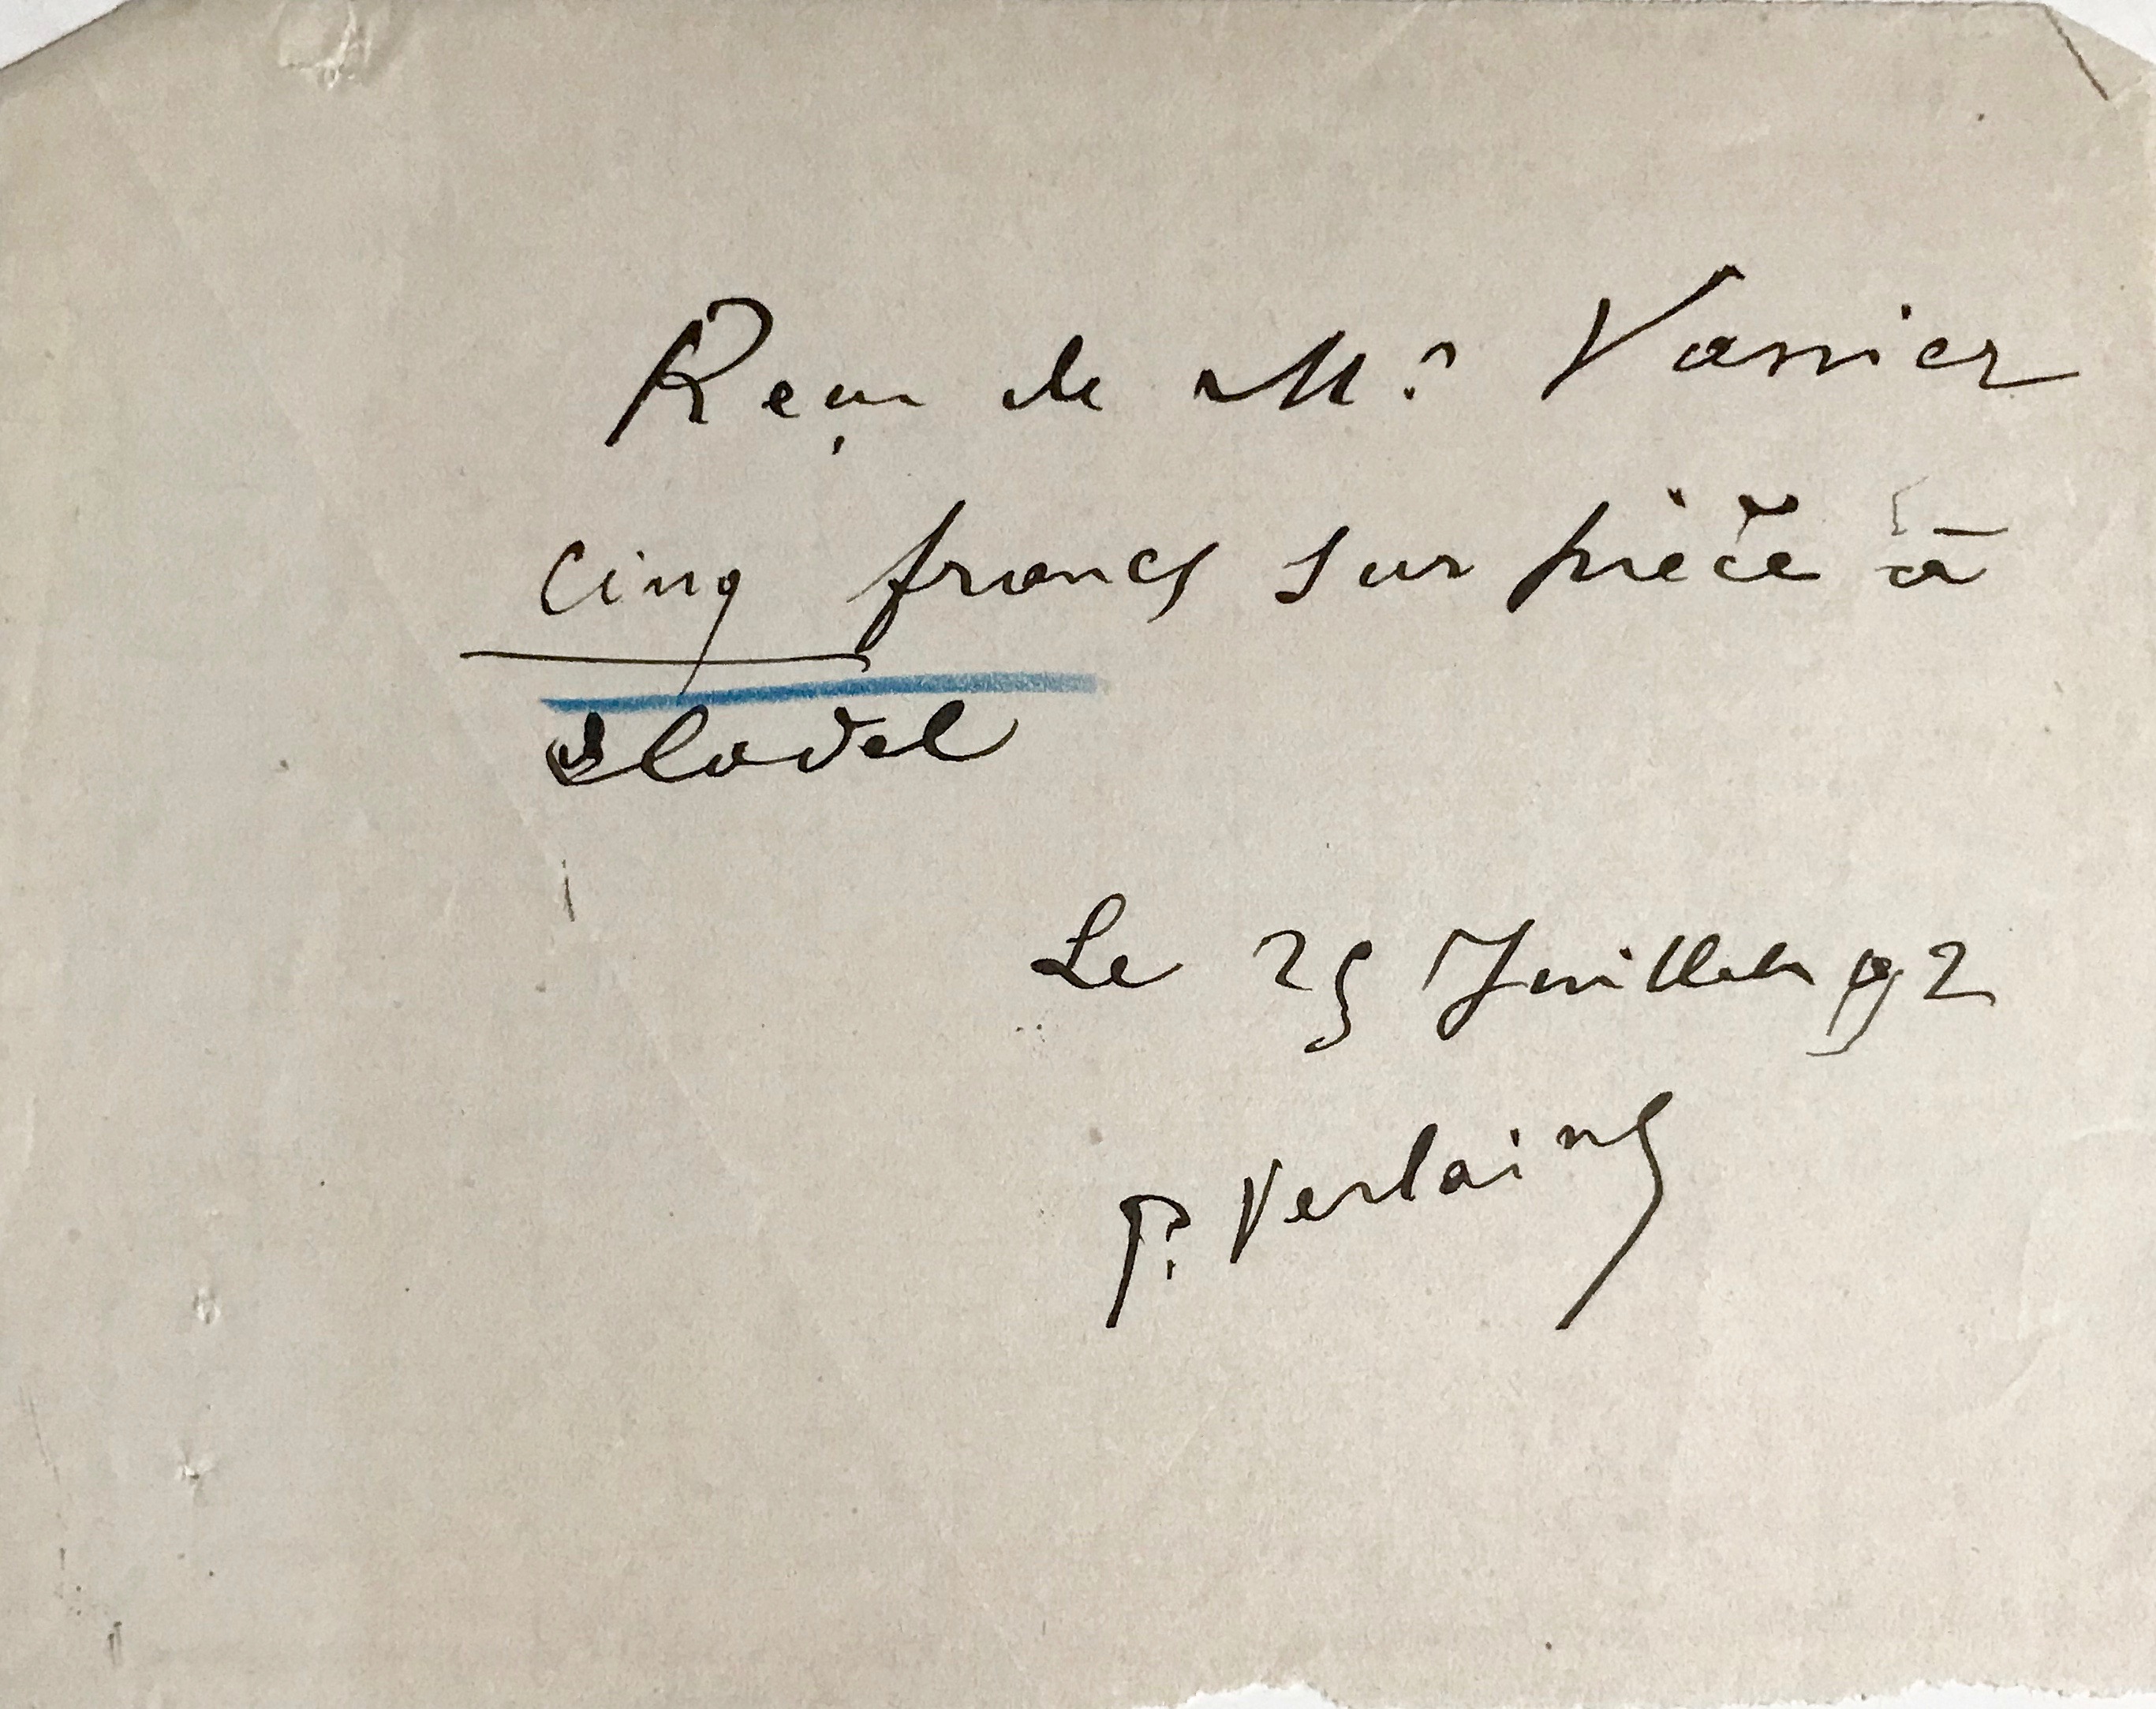 Reçu de Mr Vanier
cinq francs sur pièce à
Cladel
Le 25 Juillet 92
P. Verlaine